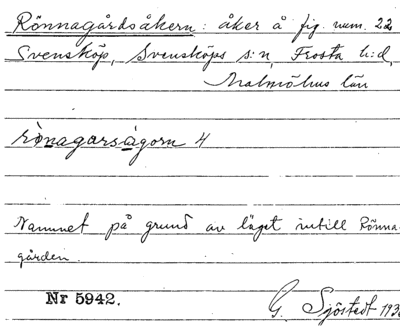 Rönnagårdsåkern: åker å fig. num. 22
Svensköp, Svensköps s:n, Frosta h:d,
Malmöhus län
rönagarsågorn 4
Namnet på grund av läget intill Rönna-
gården
Nr 5942.
G. Sjöstedt